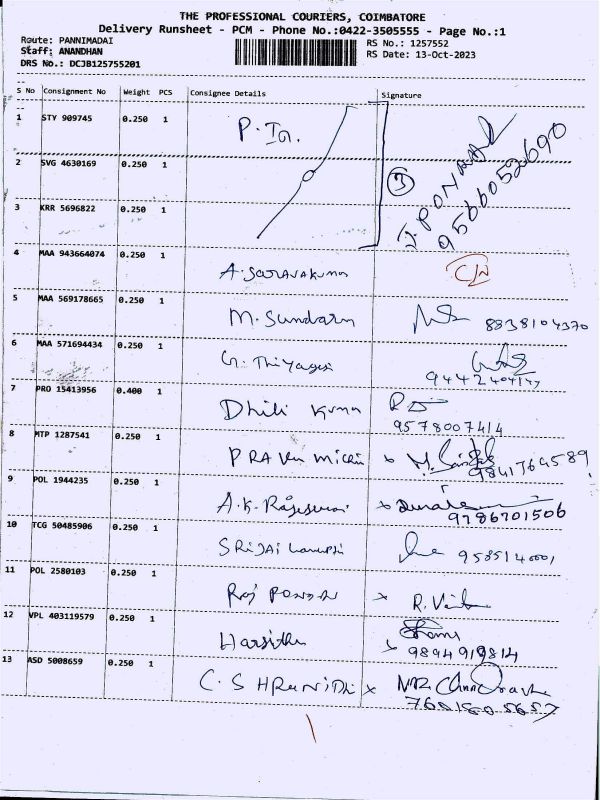 THE PROFESSIONAL COURIERS, COIMBATORE
Delivery Runsheet - PCM - Phone No.:0422-3505555 - Page No.:1
Route: PANNIMADAI
RS No.: 1257552
Staff: ANANDHAN
RS Date: 13-Oct-2023
DRS No.: DCJB125755201
S No Consignment No Weight PCS Consignee Details Signature
1 STY 909745 0.250 1 P.
2 SVG 4630169 0.250 1
3 KRR 5696822 0.250 1
3
J PONMAL
9566052690
4 MAA 943664074 0.250 1 A. Saravakumar
5 MAA 569178665 0.250 1 M. Sundaram 8838104370
6 MAA 571694434 0.250 1 G. Thiyagesh
9442404147
7 PRO 15413956 0.400 1 Dhili Kumar
9578007414
8 MTP 1287541 0.250 1 PRAVEN
9841764589
9 POL 1944235 0.250 1 A.K. Rajeswari
9786701506
10 TCG 50485906 0.250 1 SRIJAI
11 POL 2580103 0.250 1 Raj R.
12 VPL 403119579 0.250 1 Harsitha
9894919814
13 ASD 5008659 0.250 1 C.S HRUNIDHI